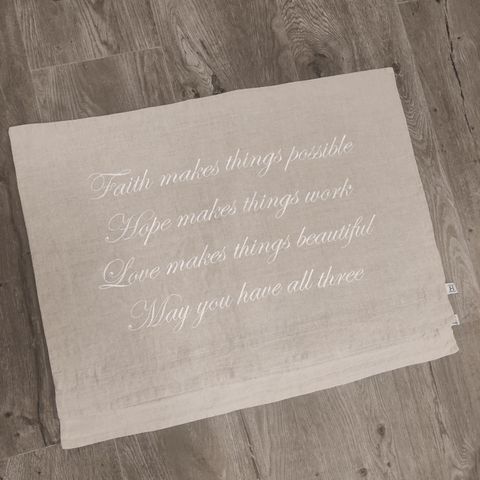 Faith makes things possible
Hope makes things work
Love makes things beautiful
May you have all three
H